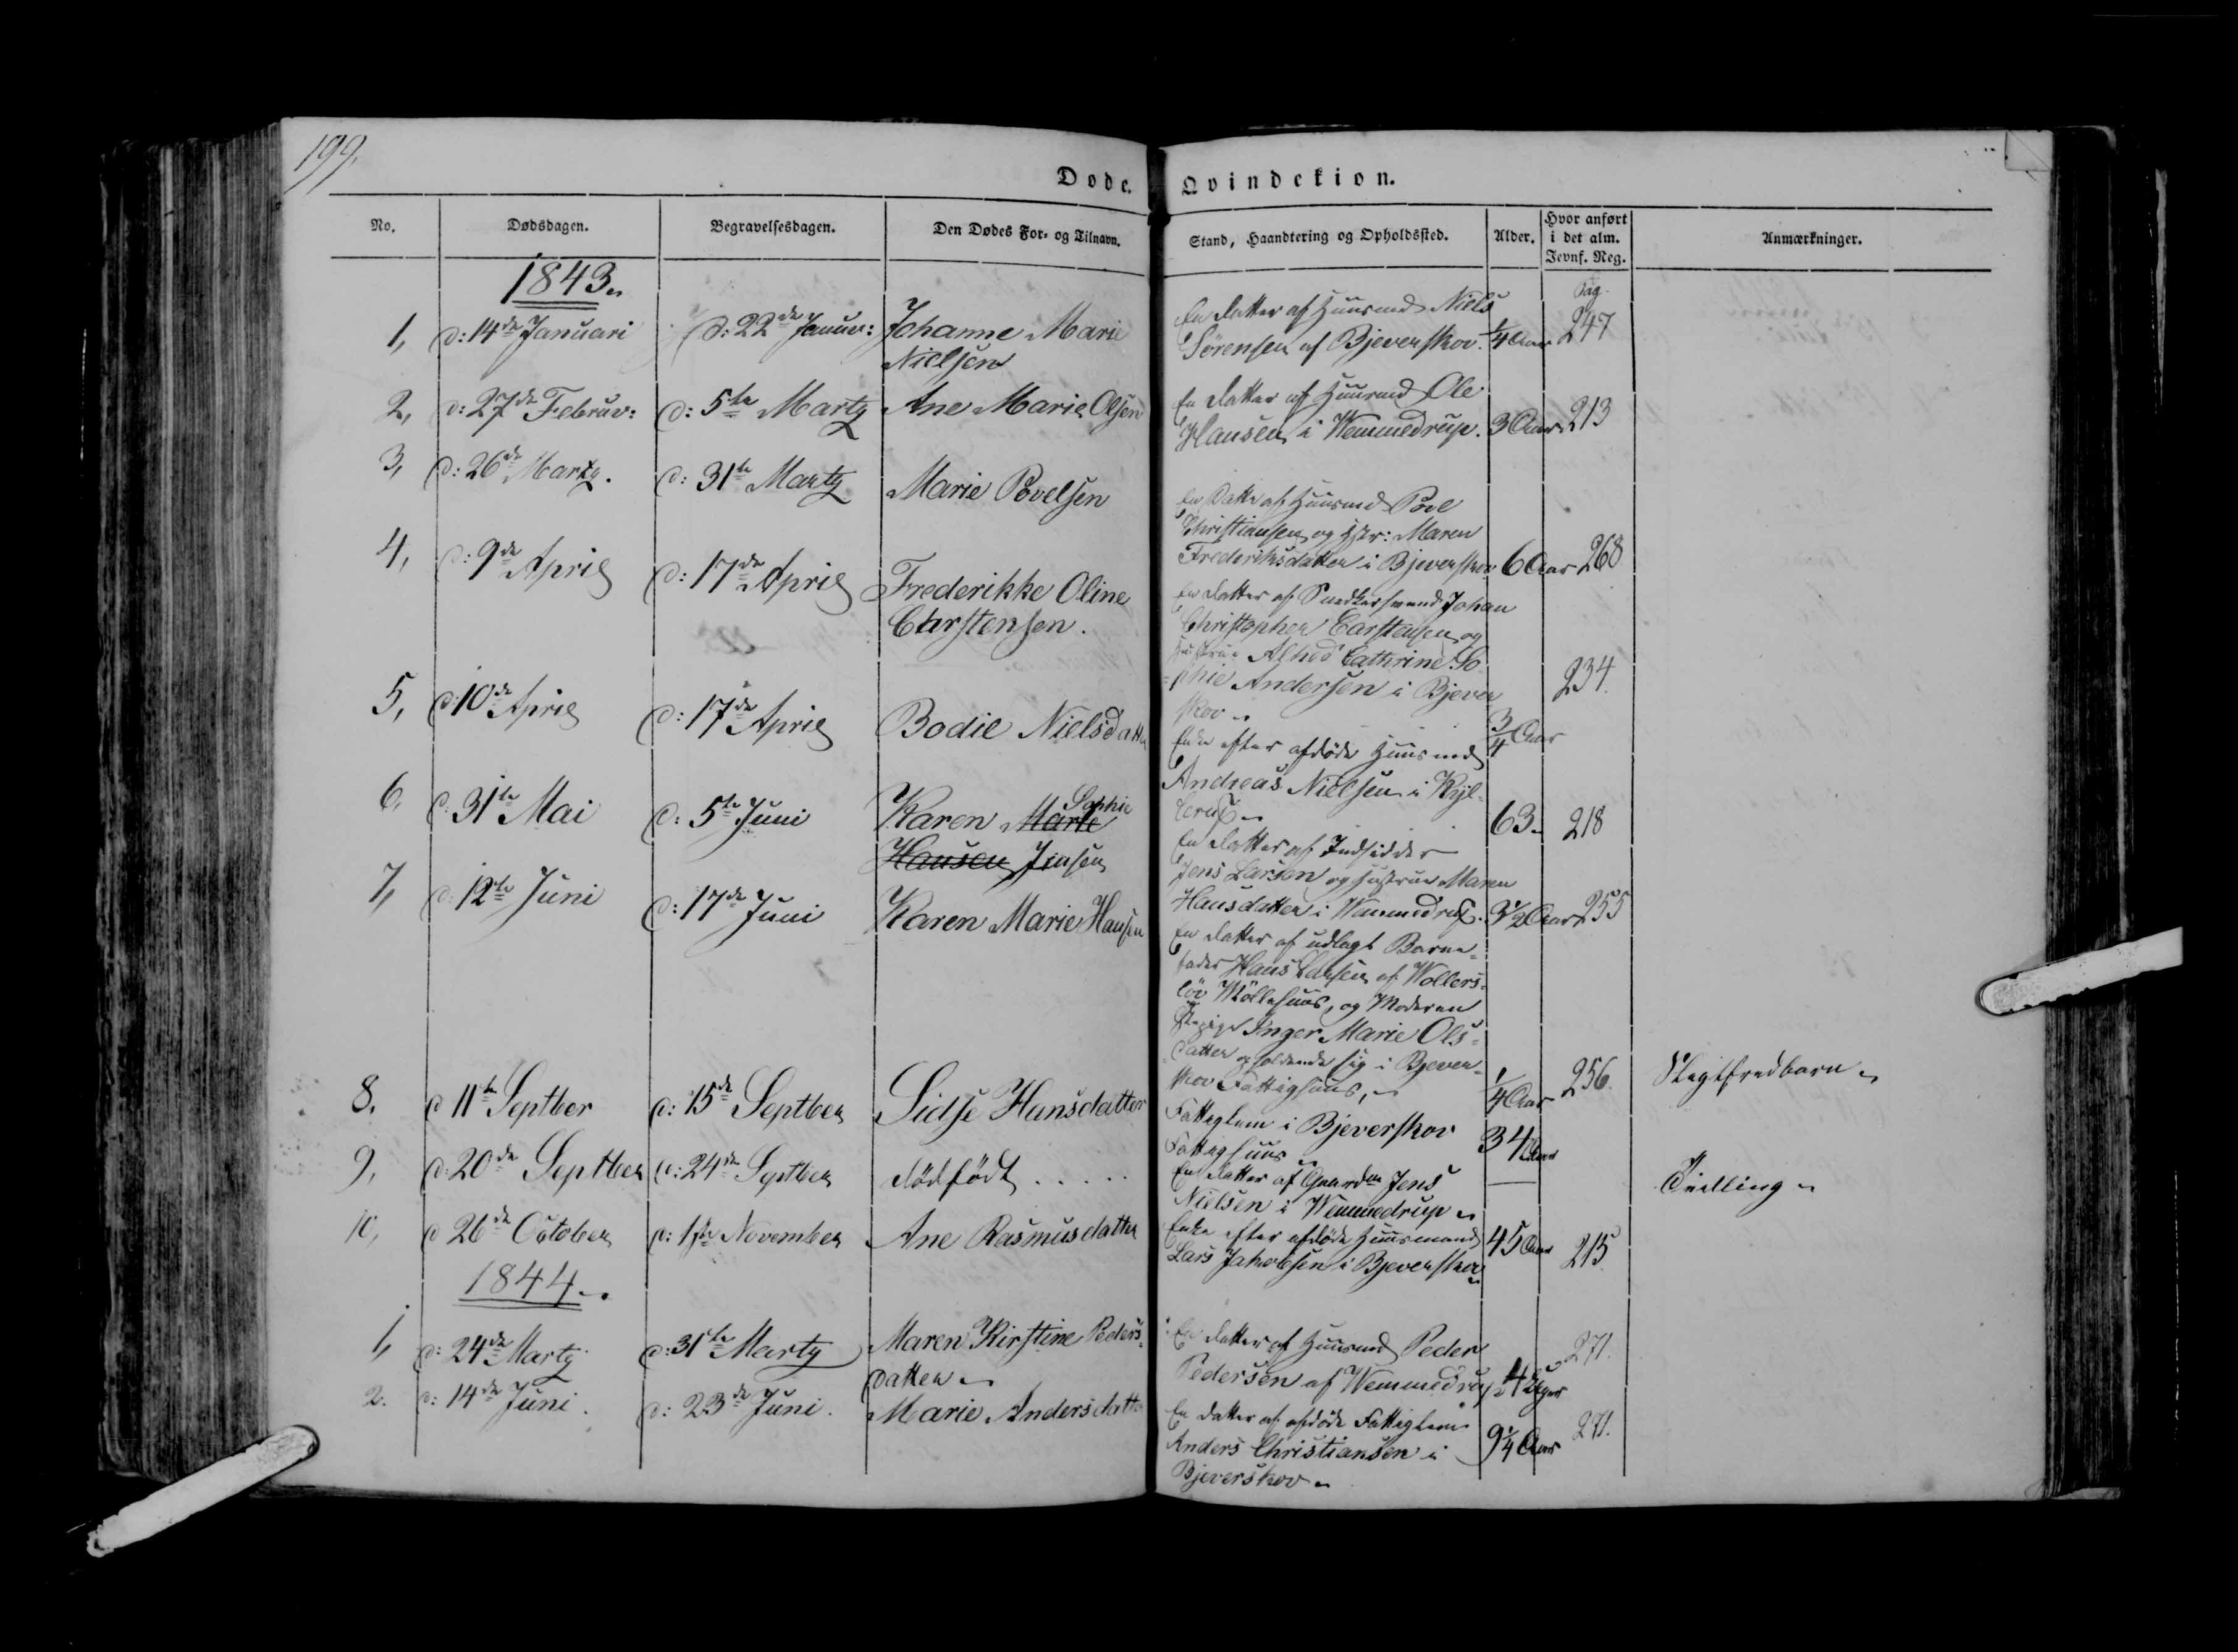 199.
Døde. Qvindekion.
No. Dødsdagen. Begravelsesdagen. Den Dødes For- og Tilnavn. Stand, Haandtering og Opholdssted. Alder. Hvor anført i det alm. Jevnf. Reg. Anmærkninger.
1843.
Pag.
1, d: 14de Januari d: 22de Januar: Johanne Marie
Nielsen
En datter af Huusmd Niels
Sørensen af Bjeverskov. 1/4 Aar 247
2, d: 27de Februar: d: 5te Marty Ane Marie Olsen
En datter af Huusmd Ole
Hansen i Wemmedrup. 3 Aar 213
3, d: 26de Marty. d: 31te Marty Marie Povelsen
En Datter af Huusmd Povl
Christiansen og Hstr: Maren
Frederiksdatter i Bjeverskov 6 Aar 268
4, d: 9de April d: 17de April Frederikke Oline
Carstensen.
En datter af Snedkersvend Johan
Christopher Carstensen og
Hustrue Alhed Cathrine So-
=phie Andersen i Bjever
skov 3/4 Aar 234.
5, d 10de April d: 17de April Bodil Nielsdatter
Enke efter afdøde Huusmd
Andreas Nielsen i Kyl-
lerup 63. 218
6, d: 31te Mai d: 5te Juni Karen Marie Sophie
Hansen Jensen
En datter af Indsidder
Jens Larsen og Hustrue Maren
Hansdatter i Wemmedrup. 3 1/2 Aar 255
7, d: 12te Juni d: 17de Juni Karen Marie Hansen
En datter af udlagt Barne-
fader Hans Larsen af Wollers-
löv Möllehuus, og Moderen
Pige Inger Marie Ols-
datter opholdende sig i Bjever-
skov Fattighuus, 1/4 Aar 256. Slegtfredbarn
8. d 11te Septber d: 15de Septber Sidse Hansdatter
Fattiglem i Bjeverskov
Fattighuus 34 Aar
9, d: 20de Septber d: 24de Septber dödfödt . . . . .
En datter af Gaardm Jens
Nielsen i Wemmedrup — Tvilling
10, d 26de October d: 1ste November Ane Rasmusdatter
Enke efter afdöde Huusmand
Lars Jakobsen i Bjeverskov 45 Aar 215
1844.
1, d: 24de Marty d: 31te Marty Maren Kirstine Peders-
datter
En datter af Huusmd Peder
Pedersen af Wemmedrup 4 Uger 271.
2. d: 14de Juni. d: 23de Juni. Marie Andersdatter
En datter af afdöde Fattiglem
Anders Christiansen i
Bjeverskov 9 1/4 Aar 271.